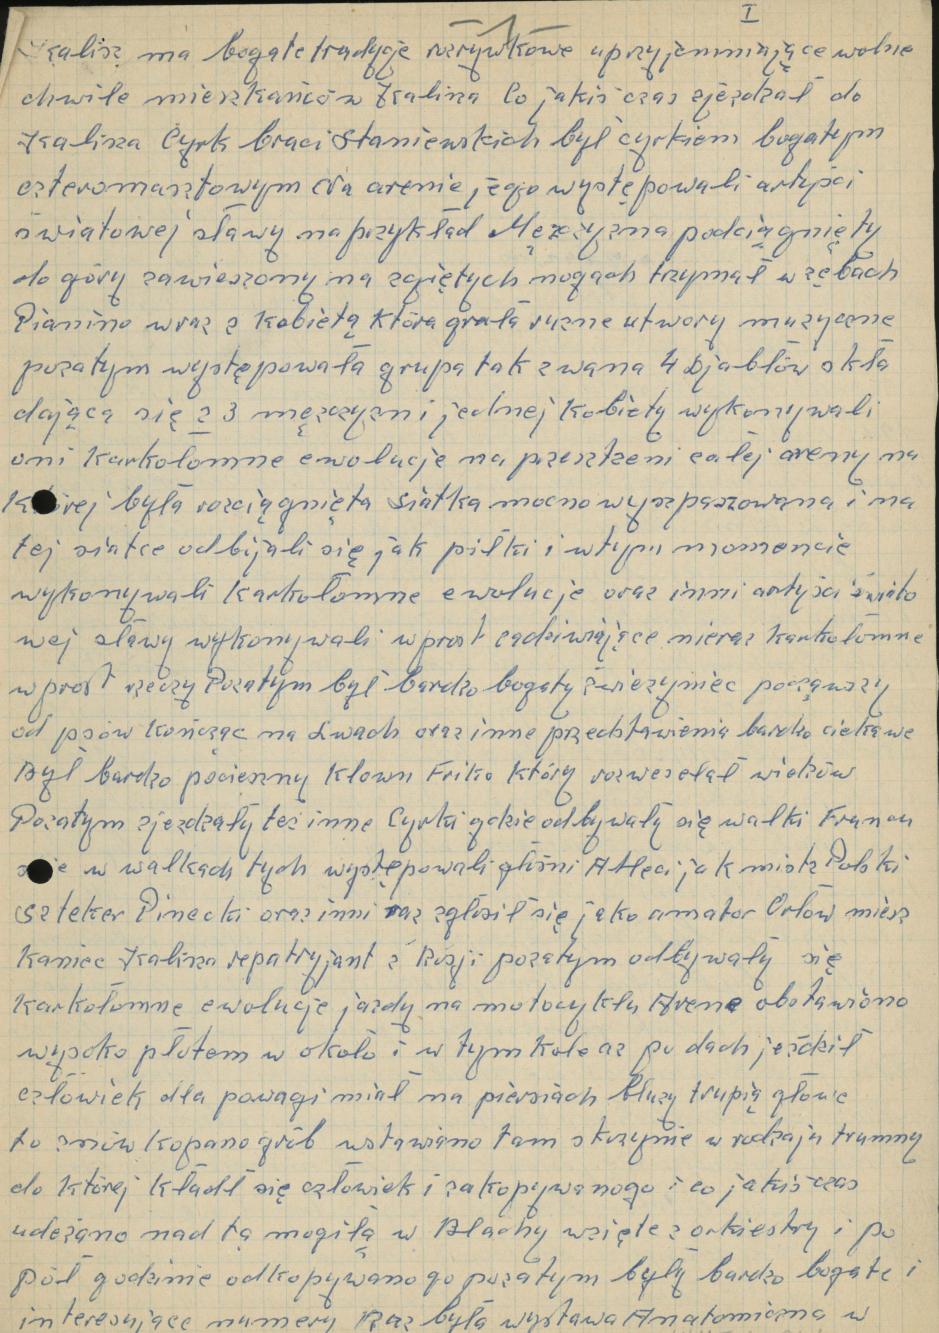 I
Kalisz ma bogate tradycje rozrywkowe uprzyjemniające wolne
chwile mieszkańców Kalisza Co jakiś czas zjeżdżał do
Kalisza Cyrk braci Staniewskich był cyrkiem bogatym
czteromasztowym Na arenie jego występowali artyści
światowej sławy naprzykład Męzczyzna podciągnięty
do góry zawieszony na zgiętych nogach trzymał w zębach
Pianino wraz z Kobietą która grała ruzne utwory muzyczne
pozatym występowała grupa tak zwana 4 Djabłów skła
dająca się z 3 męzczyzn i jednej Kobiety wykonywali
oni Karkołomne ewolucje na przestrzeni całej areny na
Której była rozciągnięta siatka mocno wyszpanowana i na
tej siatce odbijali się jak piłki i w tym momencie
wykonywali Karkołomne ewolucje oraz inni artyści świato
wej sławy wykonywali wprost zadziwiające nieraz karkołomne
wprost rzeczy Pozatym był bardzo bogaty zwiezyniec począwszy
od psów Kończąc na Lwach oraz inne przedstawienia bardzo ciekawe
Był bardzo pocieszny Klown Friko który rozweselał widzów
Pozatym zjezdzały tez inne Cyrki gdzie odbywały się walki Francu
skie w walkach tych występowali głośni Atleci jak mistz Polski
Szteker Pinecki oraz inni raz zgłosił się jako amator Orłow miesz
Kaniec Kalisza repatryjant z Rosji pozatym odbywały się
Karkołomne ewolucje jazdy na motocyklu Arene obstawiono
wysoko płotem w około i w tym kole az po dach jeździł
człowiek dla powagi miał na piersiach bluzy trupią głowe
to znów Kopano grób wstawiano tam skrzynie w rodzaju trumny
do Której Kładł się człowiek i zakopywanogo i co jakiś czas
udeżano nad tą mogiłą w Blachy wzięte z orkiestry i po
pół godzinie odkopywano go pozatym były bardzo bogate i
interesujące numery Raz była wystawa Anatomiczna w